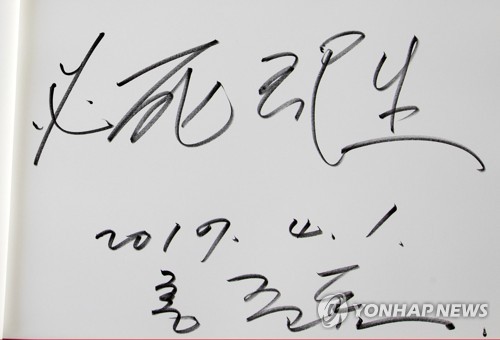 必死卽生
2017. 4. 1.
홍준표
YONHAPNEWS